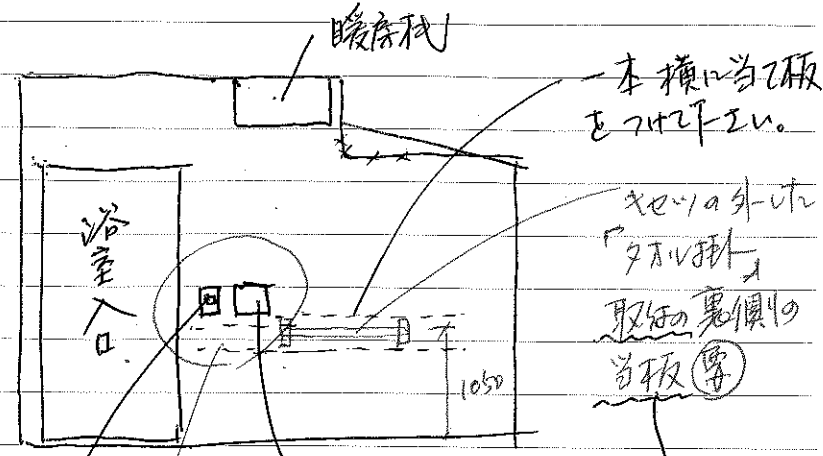 暖房機
一本横に当て板
をつけて下さい。
キセツの外した
「タオル掛」
取付の裏側の
当板 要
浴室入口
1050